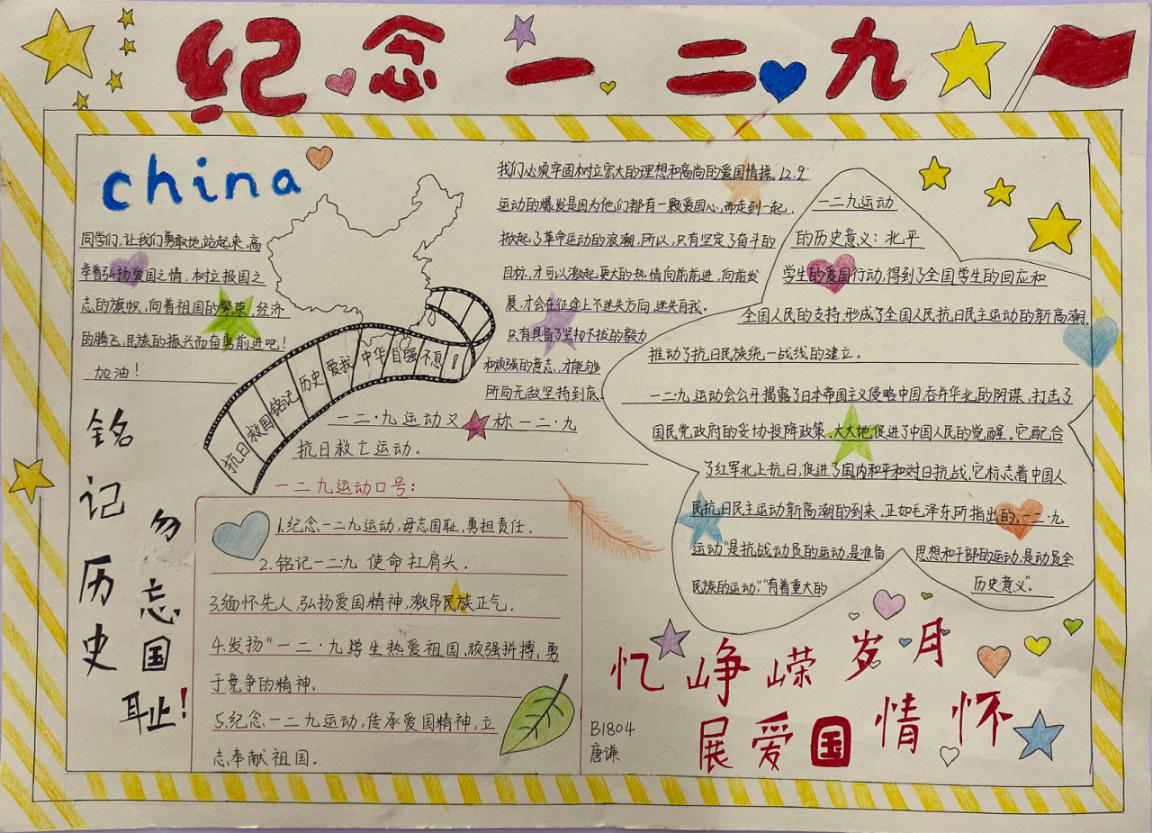 纪念一二九
china
同学们,让我们勇敢地站起来,高
举着弘扬爱国之情,树立报国之
志的旗帜,向着祖国的繁荣,经济
的腾飞,民族的振兴而奋勇前进吧!
加油!
抗日救国 铭记历史 爱我中华 自强不息!
一二·九运动又称一二·九
抗日救亡运动.
我们必须牢固树立宏大的理想和高尚的爱国情操,12.9
运动的爆发是因为他们都有一颗爱国心,而走到一起,
掀起了革命运动的浪潮,所以,只有坚定了奋斗的
目标,才可以激起更大的热情向前前进,向前发
展,才会在征途上不迷失方向,迷失自我.
只有具备了坚韧不拔的毅力
和顽强的意志,才能够
所向无敌坚持到底.
一二九运动
的历史意义:北平
学生的爱国行动,得到了全国学生的回应和
全国人民的支持,形成了全国人民抗日民主运动的新高潮,
推动了抗日民族统一战线的建立.
一二九运动会公开揭露了日本帝国主义侵略中国,吞并华北的阴谋,打击了
国民党政府的妥协投降政策,大大地促进了中国人民的觉醒,它配合
了红军北上抗日,促进了国内和平和对日抗战,它标志着中国人
民抗日民主运动新高潮的到来,正如毛泽东所指出的,一二·九
运动"是抗战动员的运动,是准备思想和干部的运动,是动员全
民族的运动""有着重大的历史意义".
铭记历史
勿忘国耻!
一二九运动口号:
1.纪念一二九运动,毋忘国耻,勇担责任.
2.铭记一二九 使命扛肩头.
3.缅怀先人,弘扬爱国精神,激昂民族正气.
4.发扬"一二·九学生热爱祖国,顽强拼搏,勇
于竞争的精神.
5.纪念一二九运动,传承爱国精神,立
志奉献祖国.
B1804
唐谦
忆峥嵘岁月
展爱国情怀